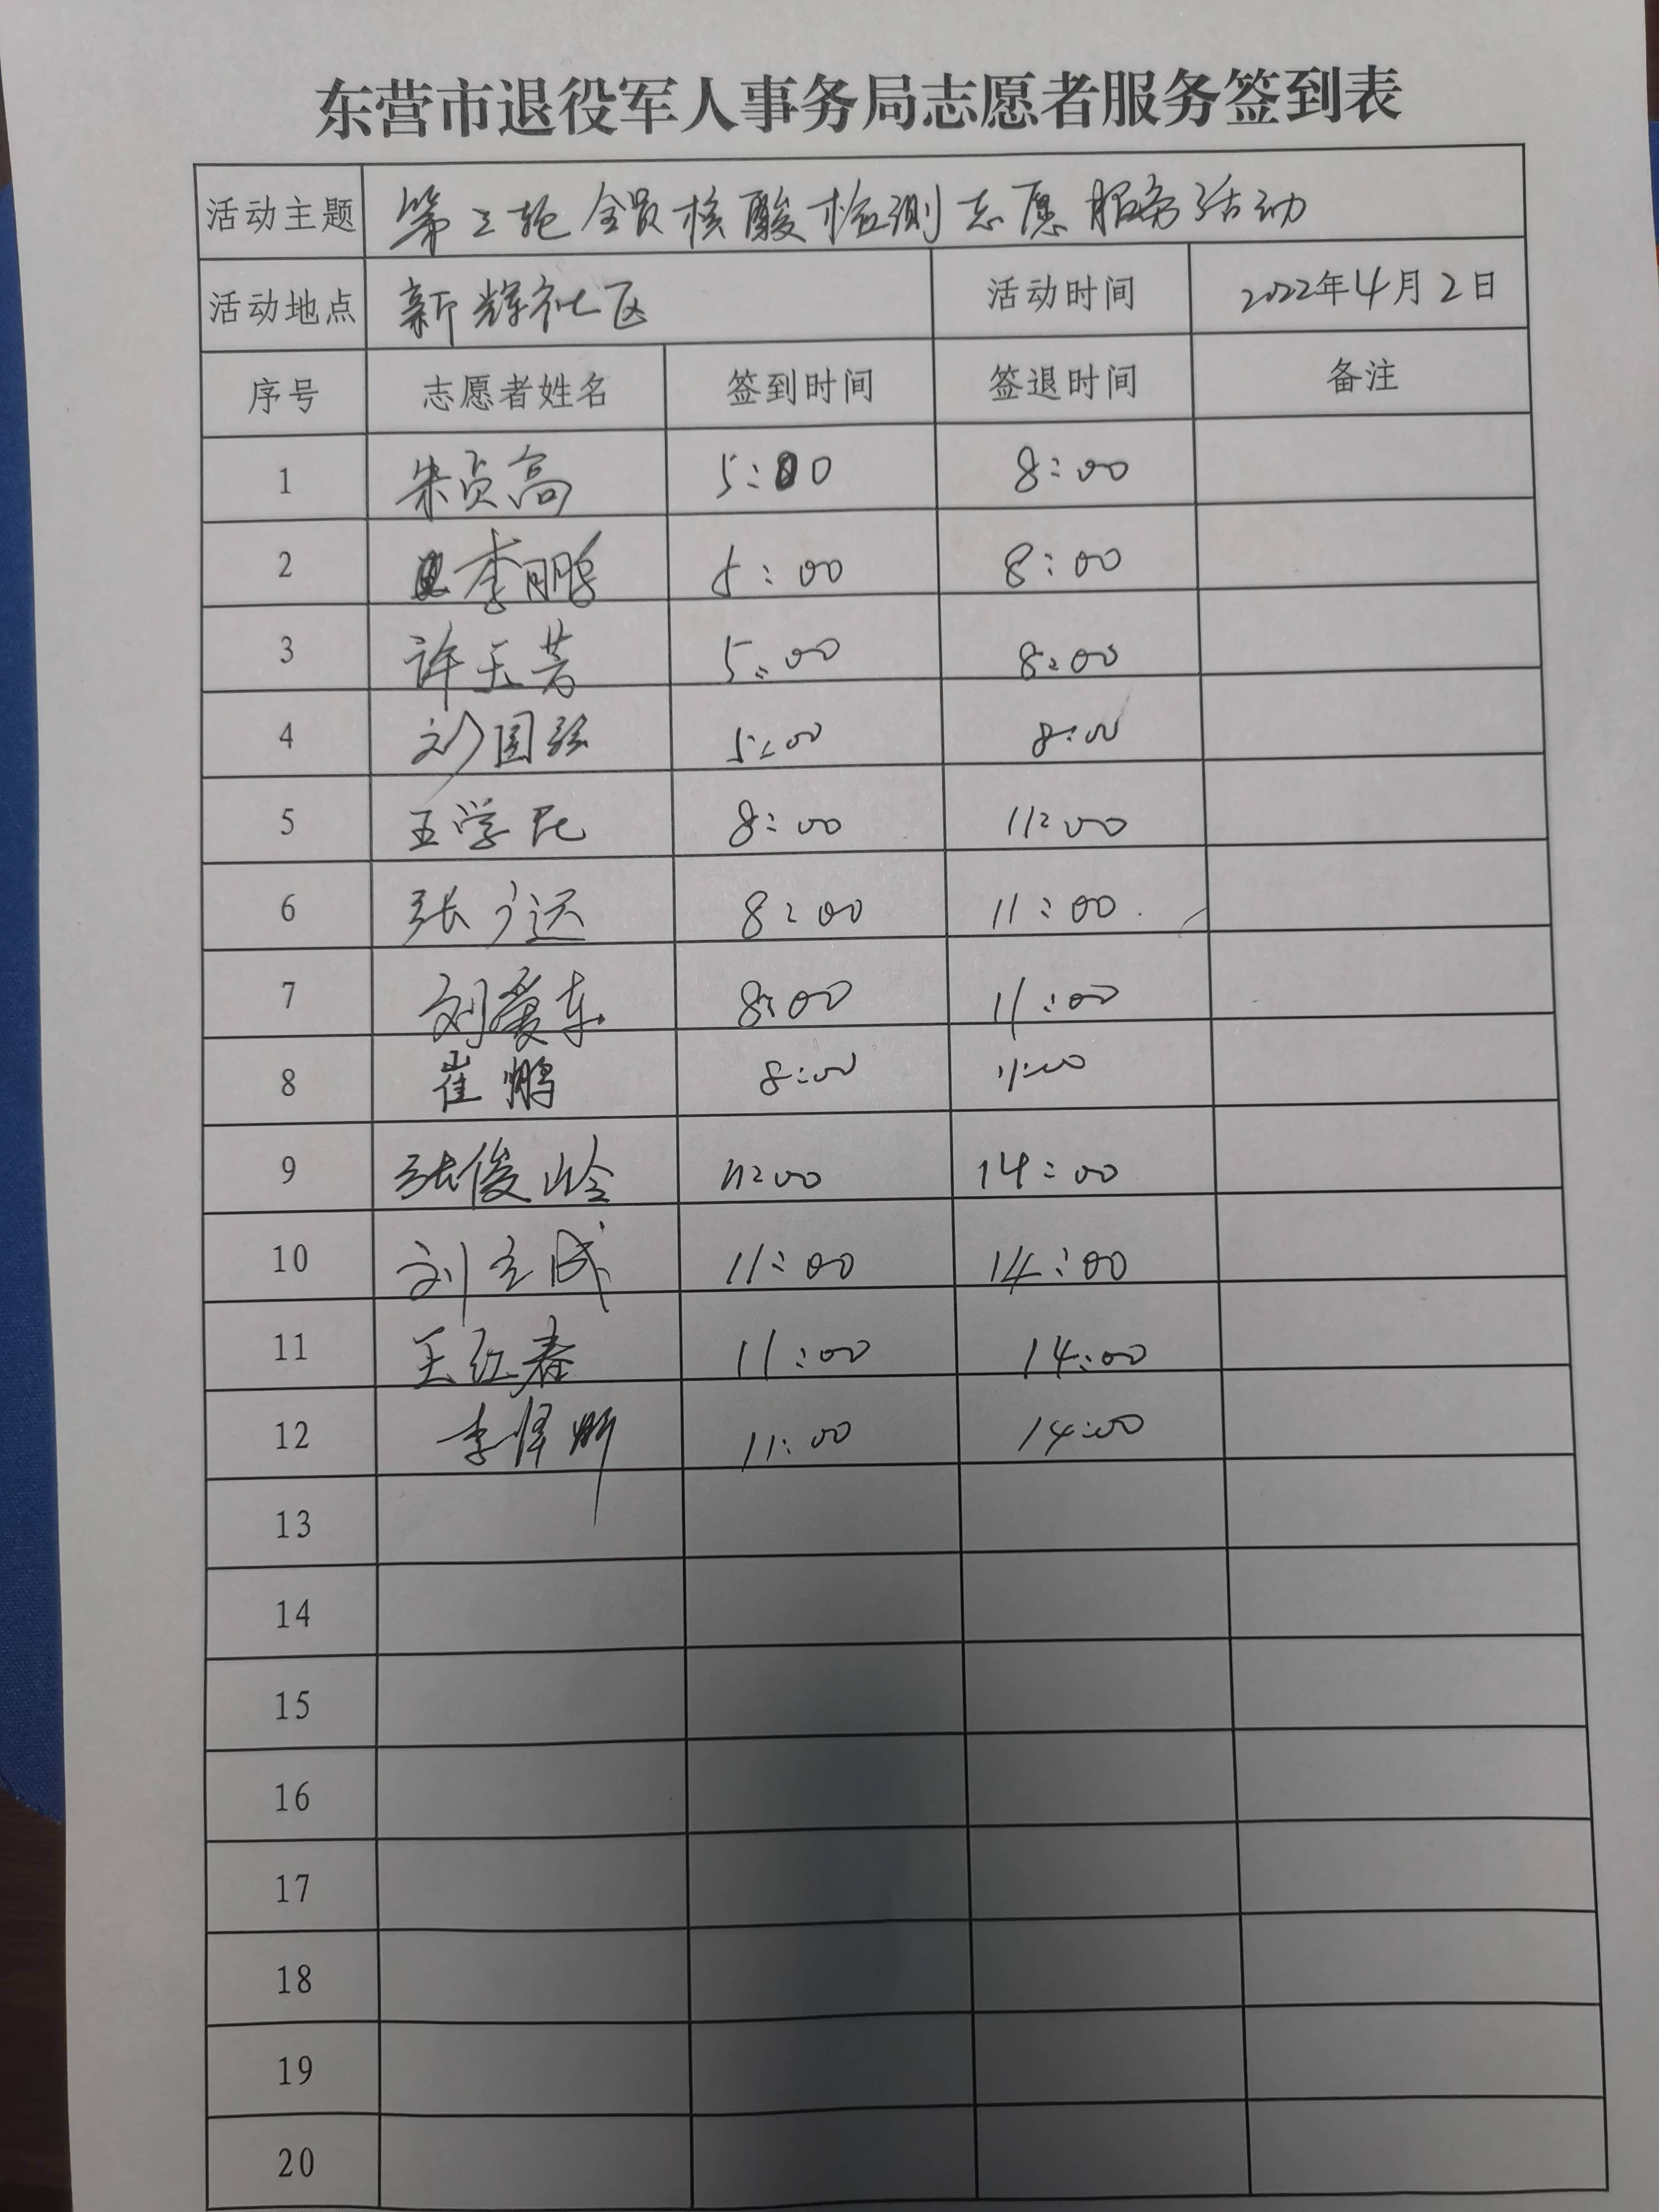 东营市退役军人事务局志愿者服务签到表
活动主题 第三轮全员核酸检测志愿服务活动
活动地点 新辉社区 活动时间 2022年4月2日
序号 志愿者姓名 签到时间 签退时间 备注
1 朱贞高 5:00 8:00
2 李鹏 5:00 8:00
3 许玉芳 5:00 8:00
4 刘国强 5:00 8:00
5 王学昆 8:00 11:00
6 张广远 8:00 11:00
7 刘爱东 8:00 11:00
8 崔鹏 8:00 11:00
9 张俊岭 11:00 14:00
10 刘立成 11:00 14:00
11 王红春 11:00 14:00
12 李 11:00 14:00
13
14
15
16
17
18
19
20